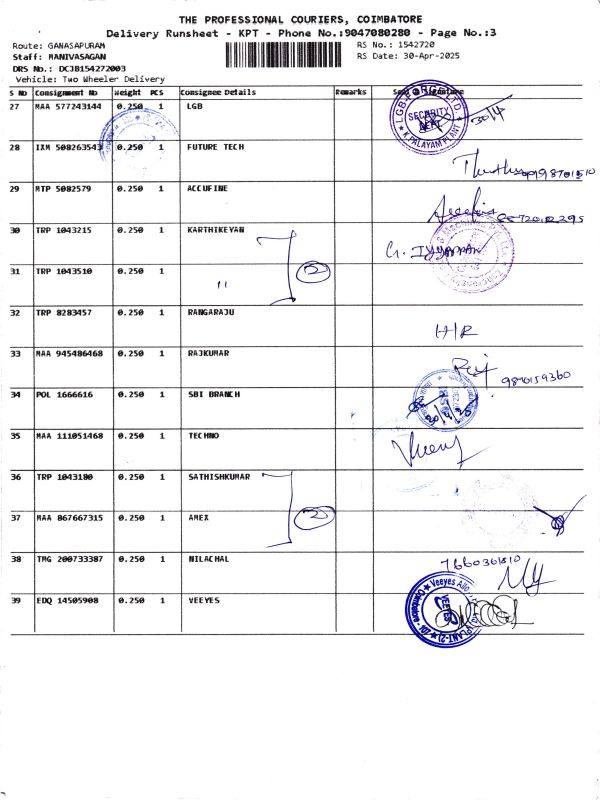 THE PROFESSIONAL COURIERS, COIMBATORE
Delivery Runsheet - KPT - Phone No.:9047080280 - Page No.:3
Route: GANASAPURAM RS No.: 1542720
Staff: MANIVASAGAN RS Date: 30-Apr-2025
DRS No.: DCJB154272003
Vehicle: Two Wheeler Delivery
S No Consignment No Weight PCS Consignee Details Remarks Seal & Signature
27 MAA 577243144 0.250 1 LGB
SECURITY
K.PALAYAM PLANT
30/4
28 IXM 508263543 0.250 1 FUTURE TECH
29 MTP 5082579 0.250 1 ACCUFINE
30 TRP 1043215 0.250 1 KARTHIKEYAN
2
G. IYYAPPAN
31 TRP 1043510 0.250 1 "
32 TRP 8283457 0.250 1 RANGARAJU
H/R
33 MAA 945486468 0.250 1 RAJKUMAR
34 POL 1666616 0.250 1 SBI BRANCH
35 MAA 111051468 0.250 1 TECHNO
36 TRP 1043180 0.250 1 SATHISHKUMAR
2
37 MAA 867667315 0.250 1 AMEX
38 TMG 200733387 0.250 1 NILACHAL
39 EDQ 14505908 0.250 1 VEEYES